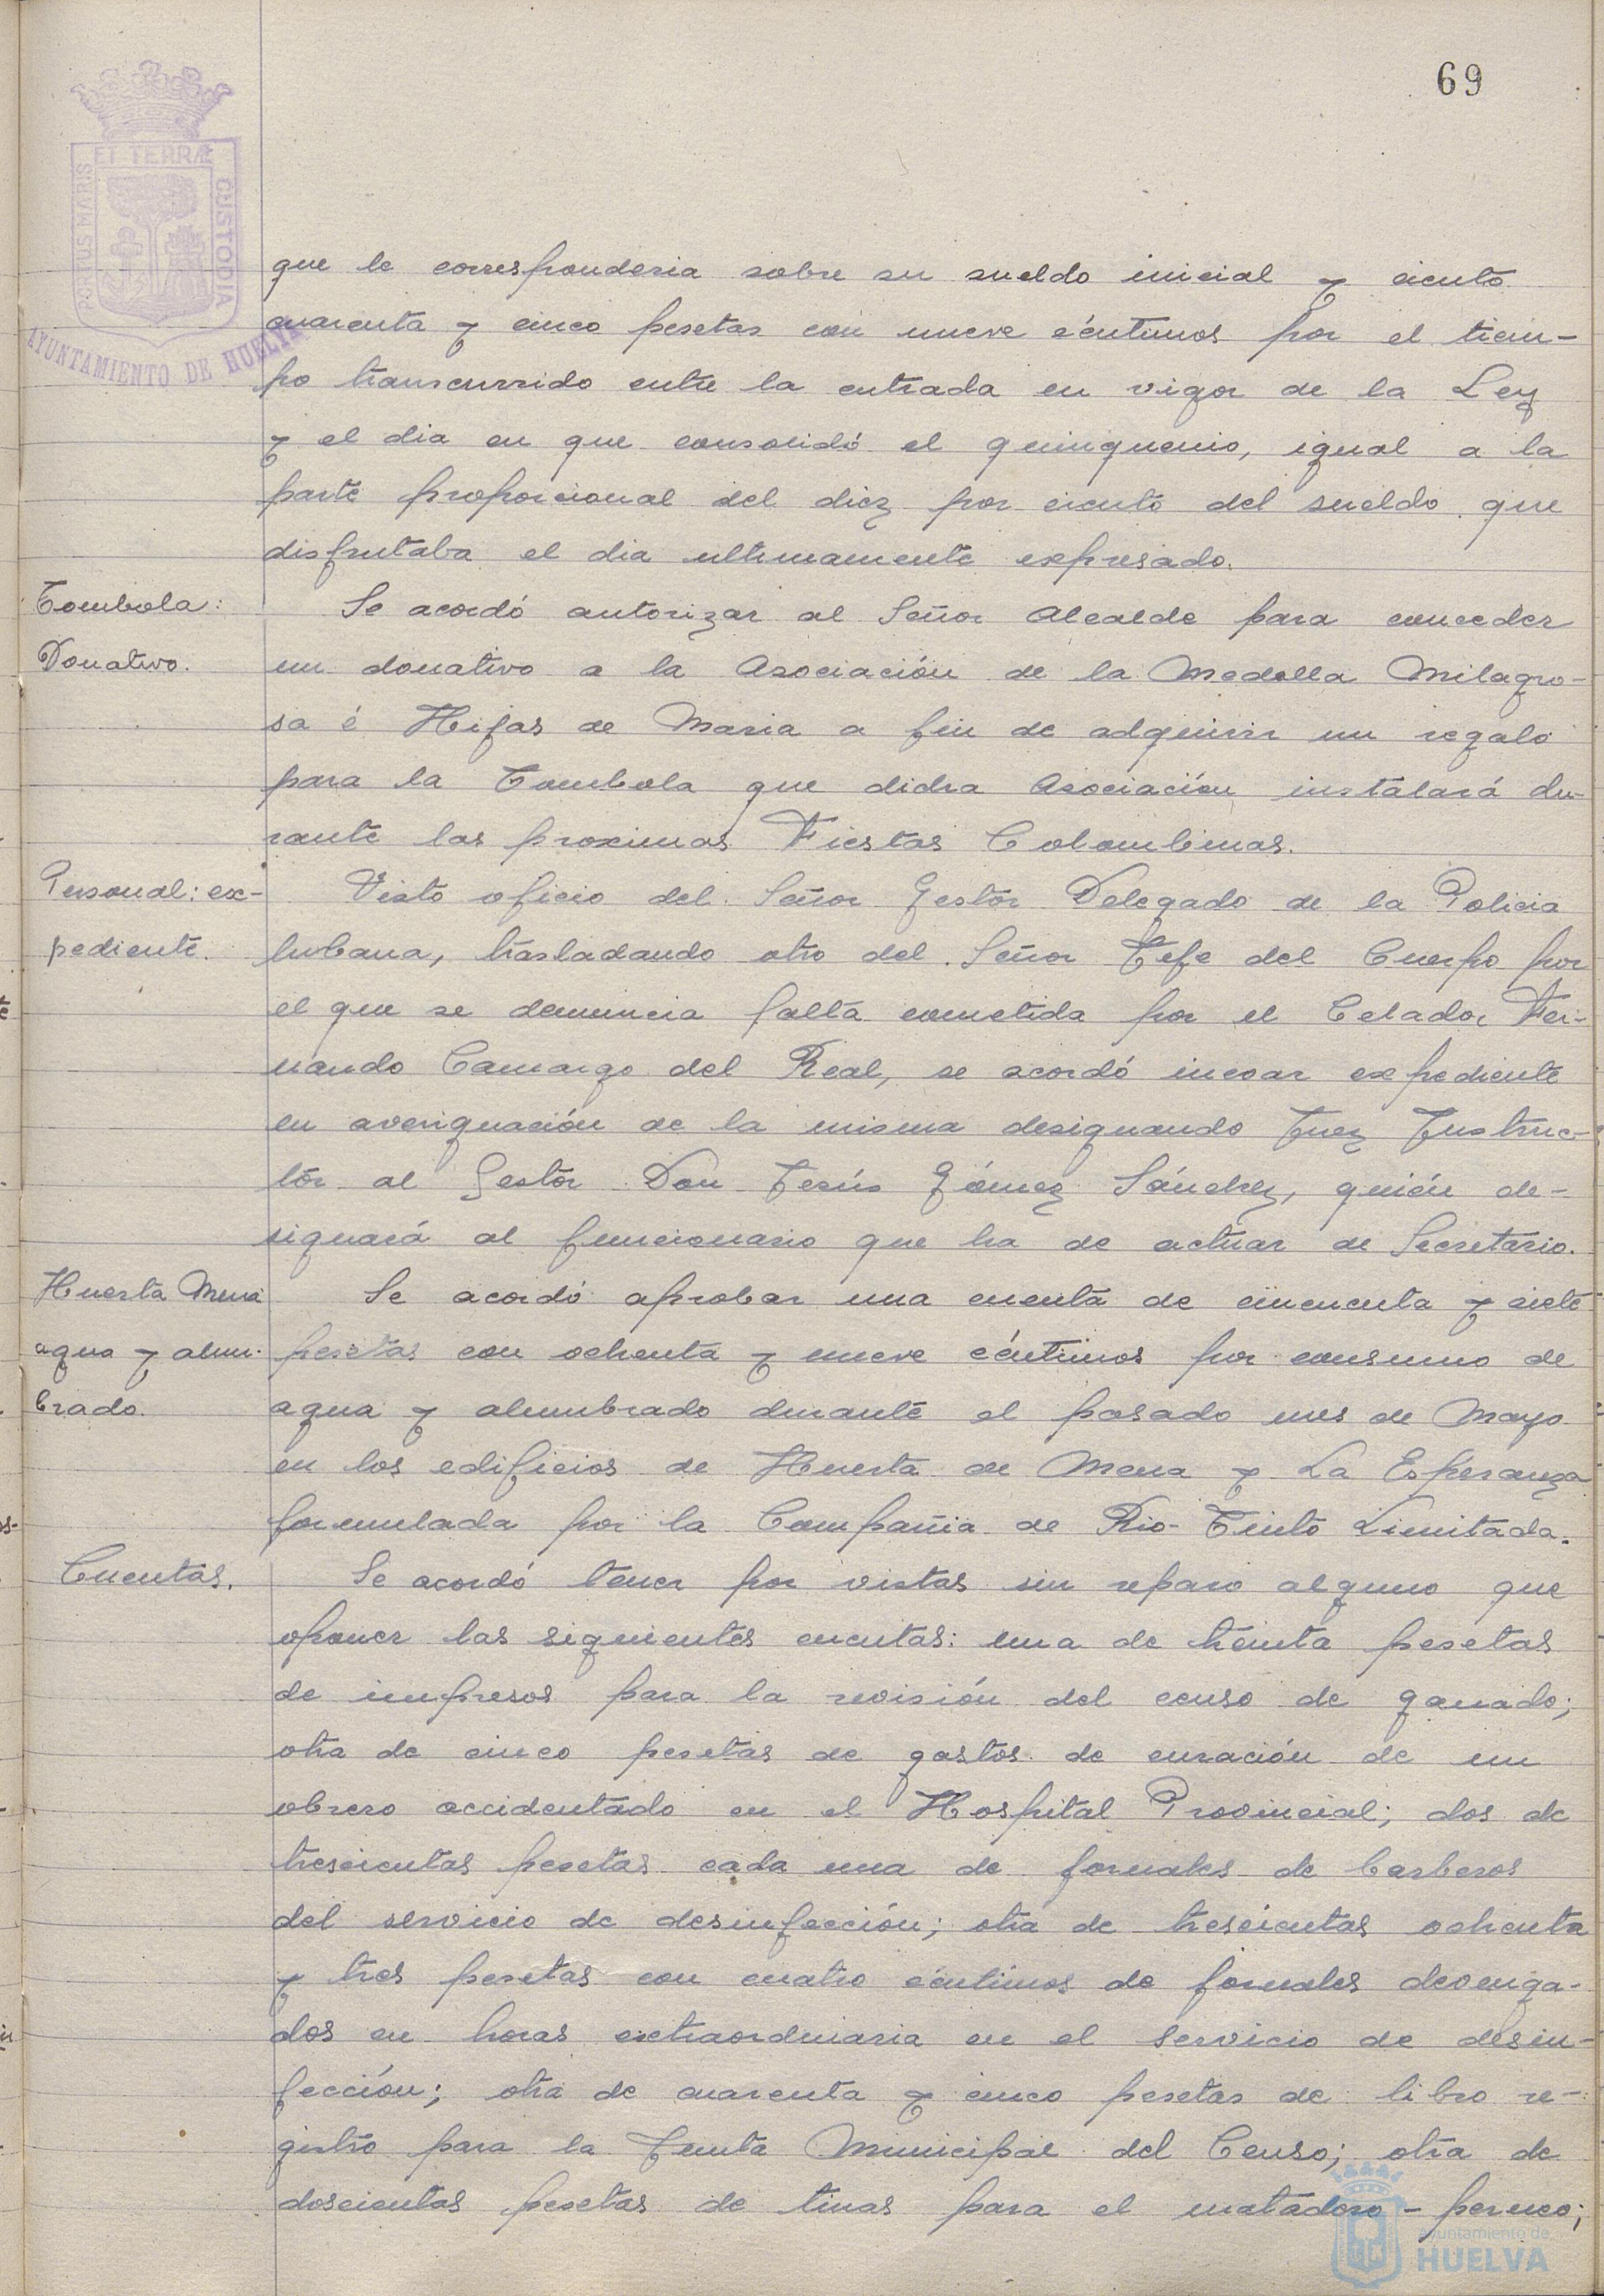 69
PORTUS MARIS
ET TERRÆ
CUSTODIA
AYUNTAMIENTO DE HUELVA
que le corresponderia sobre su sueldo inicial y ciento
cuarenta y cinco pesetas con nueve céntimos por el tiem-
po transcurrido entre la entrada en vigor de la Ley
y el dia en que consolidó el quinquenio, igual a la
parte proporcional del diez por ciento del sueldo que
disfrutaba el dia ultimamente expresado.
Tombola:
Donativo.
Se acordó autorizar al Señor Alcalde para conceder
un donativo a la Asociación de la Medalla Milagro-
sa é Hijas de Maria a fin de adquirir un regalo
para la Tombola que dicha Asociación instalará du-
rante las proximas Fiestas Colombinas.
Personal: ex-
pediente.
Visto oficio del Señor Gestor Delegado de la Policia
Urbana, trasladando otro del Señor Jefe del Cuerpo por
el que se denuncia falta cometida por el Celador Fer-
nando Camargo del Real, se acordó incoar expediente
en averiguación de la misma designando Juez Instruc-
tor al Gestor Don Jesús Gómez Sánchez, quién de-
signará al funcionario que ha de actuar de Secretario.
Huerta Mena
agua y alum-
brado.
Se acordó aprobar una cuenta de cincuenta y siete
pesetas con ochenta y nueve céntimos por consumo de
agua y alumbrado durante el pasado mes de Mayo
en los edificios de Huerta de Mena y La Esperanza
formulada por la Compañia de Rio-Tinto Limitada.
Cuentas.
Se acordó tener por vistas sin reparo alguno que
oponer las siguientes cuentas: una de treinta pesetas
de impresos para la revisión del censo de ganado;
otra de cinco pesetas de gastos de curación de un
obrero accidentado en el Hospital Provincial; dos de
trescientas pesetas cada una de jornales de barberos
del servicio de desinfección; otra de trescientas ochenta
y tres pesetas con cuatro céntimos de jornales devenga-
dos en horas extraordinaria en el servicio de desin-
fección; otra de cuarenta y cinco pesetas de libro re-
gistro para la Junta Municipal del Censo; otra de
doscientas pesetas de tinas para el matadero-
ayuntamiento de
HUELVA